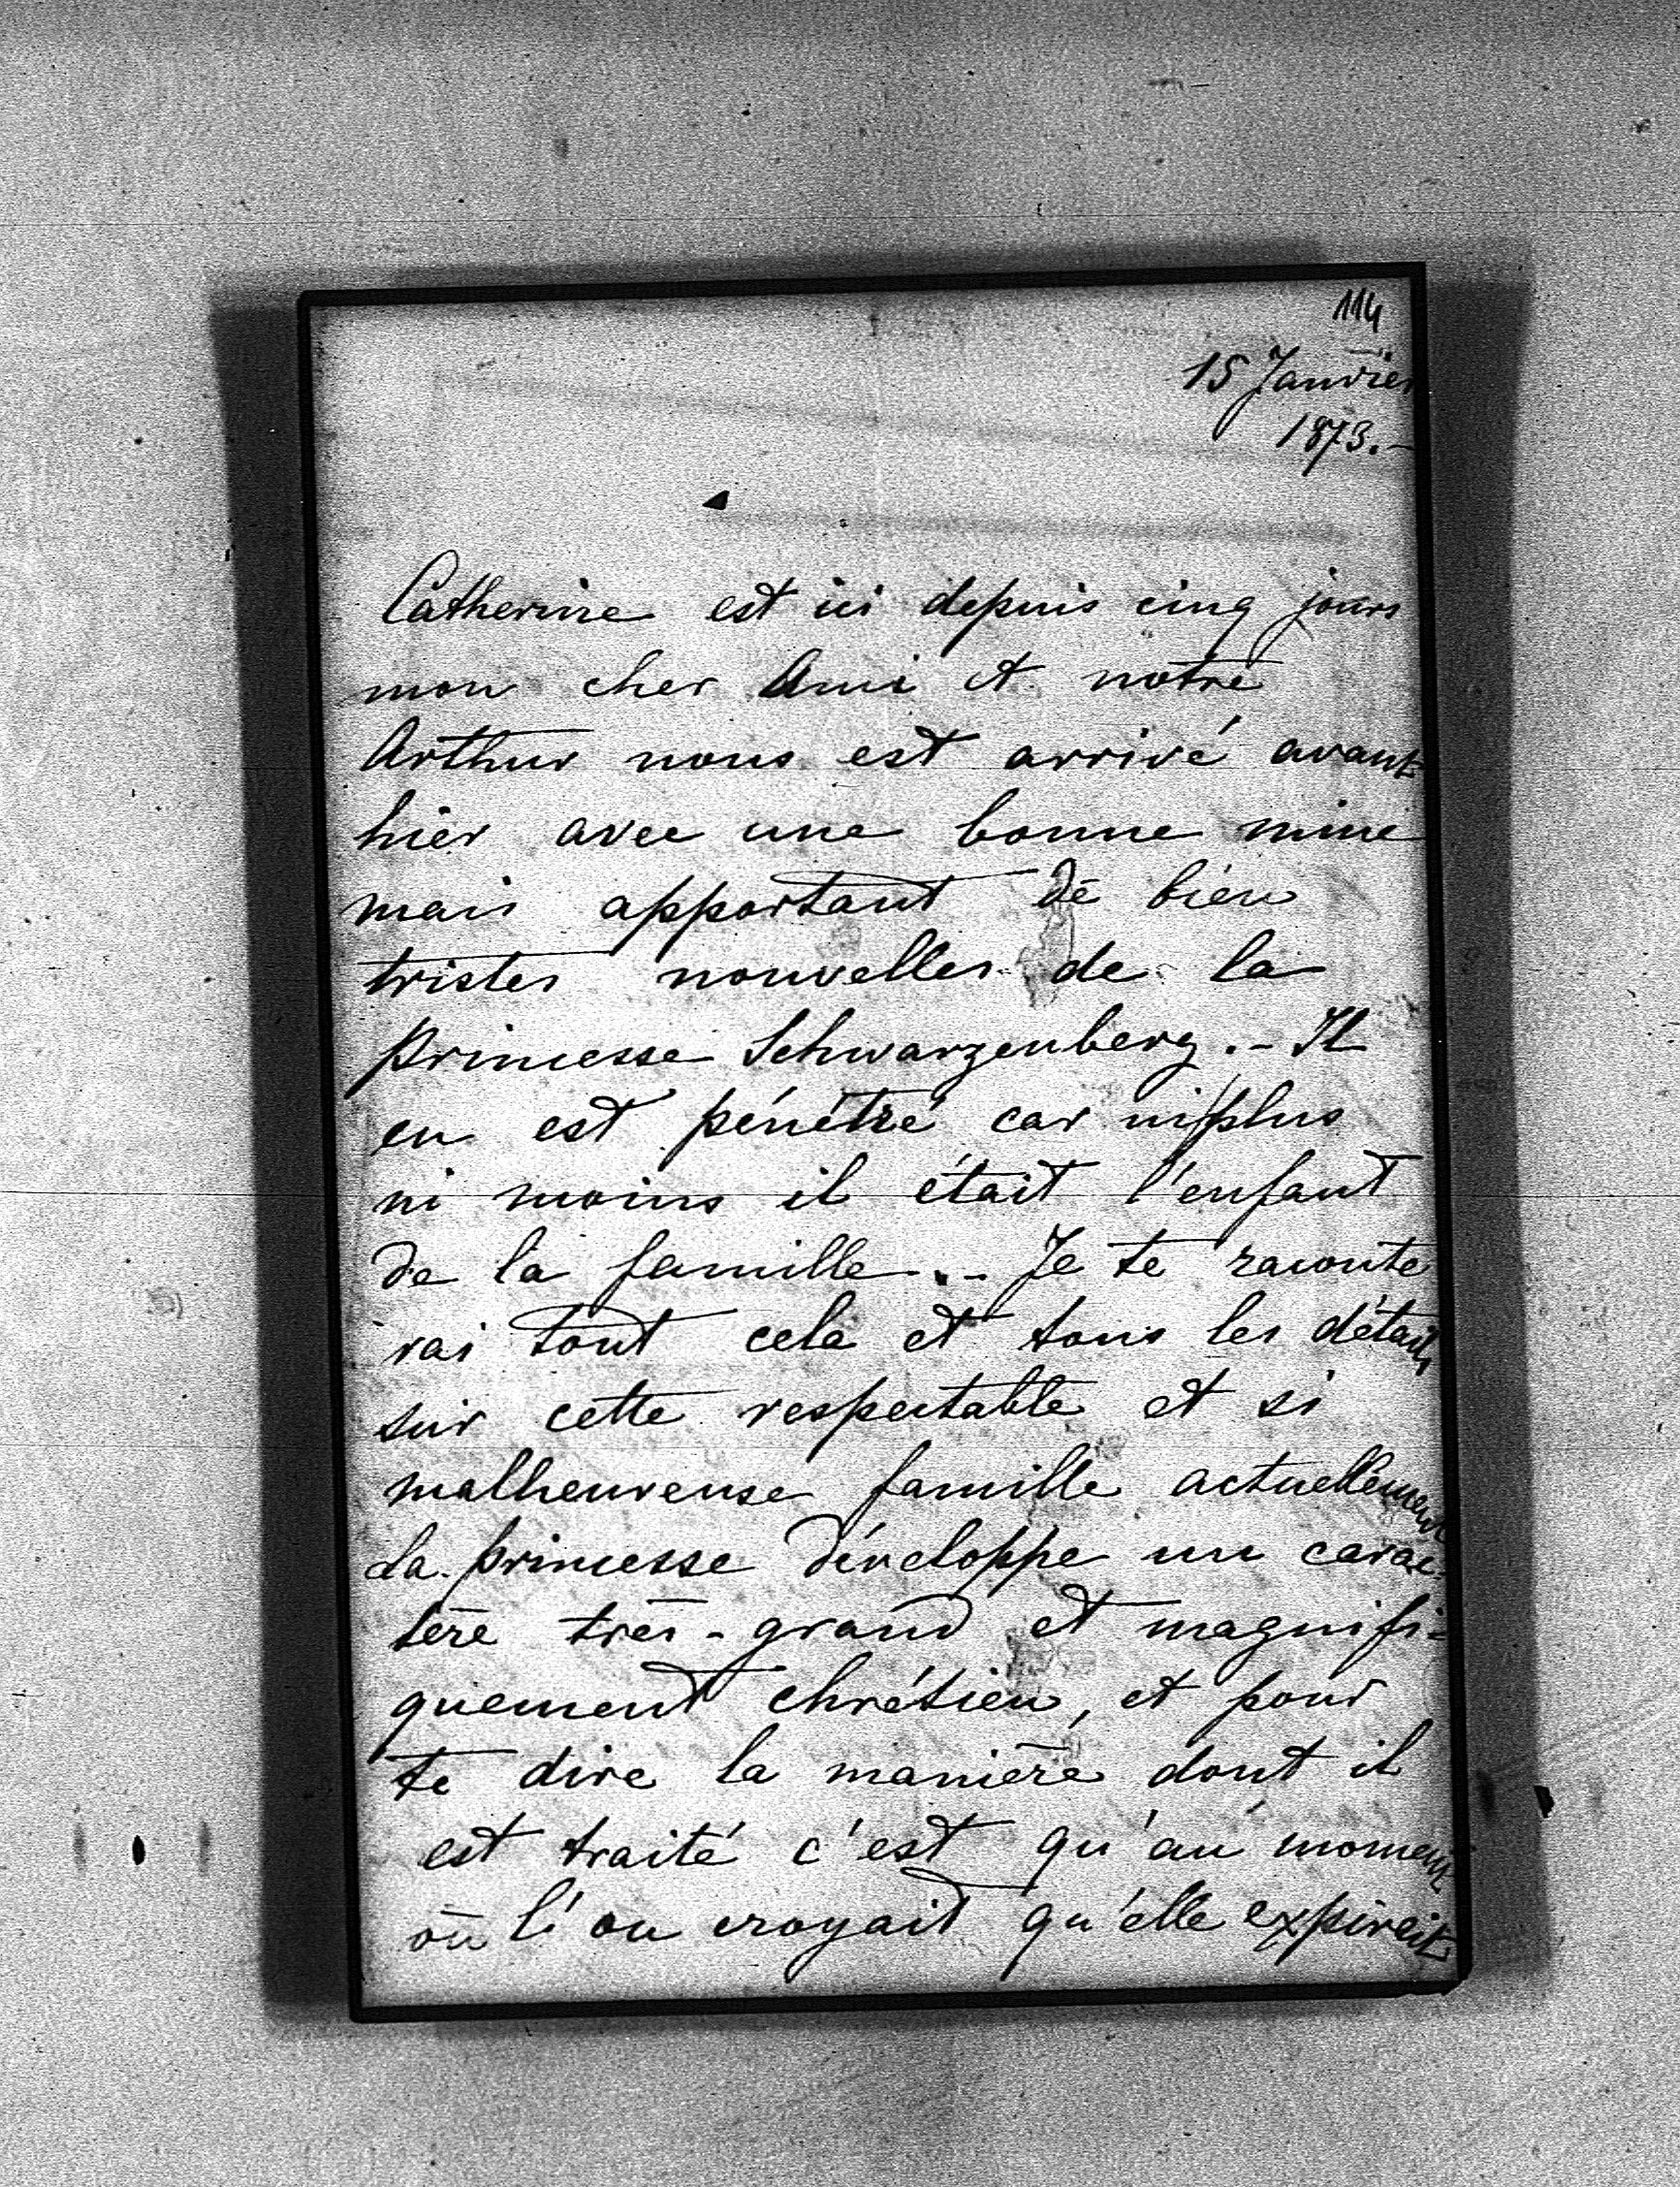 114
15 Janvier
1873.-
Catherine est ici depuis cinq jours
mon cher Ami et notre
Arthur nous est arrivé avant-
hier avec une bonne mine
mais apportant de bien
tristes nouvelles de la
Princesse Schwarzenberg.- Il
en est pénétré car ni plus
ni moins il était l'enfant
de la famille.- Je te raconte
rai tout cela et tous les détails
sur cette respectable et si
malheureuse famille actuellement
La Princesse développe un carac-
tère très-grand et magnifi-
quement chrétien, et pour
te dire la manière dont il
est traité c'est qu'au moment
où l'on croyait qu'elle expirait